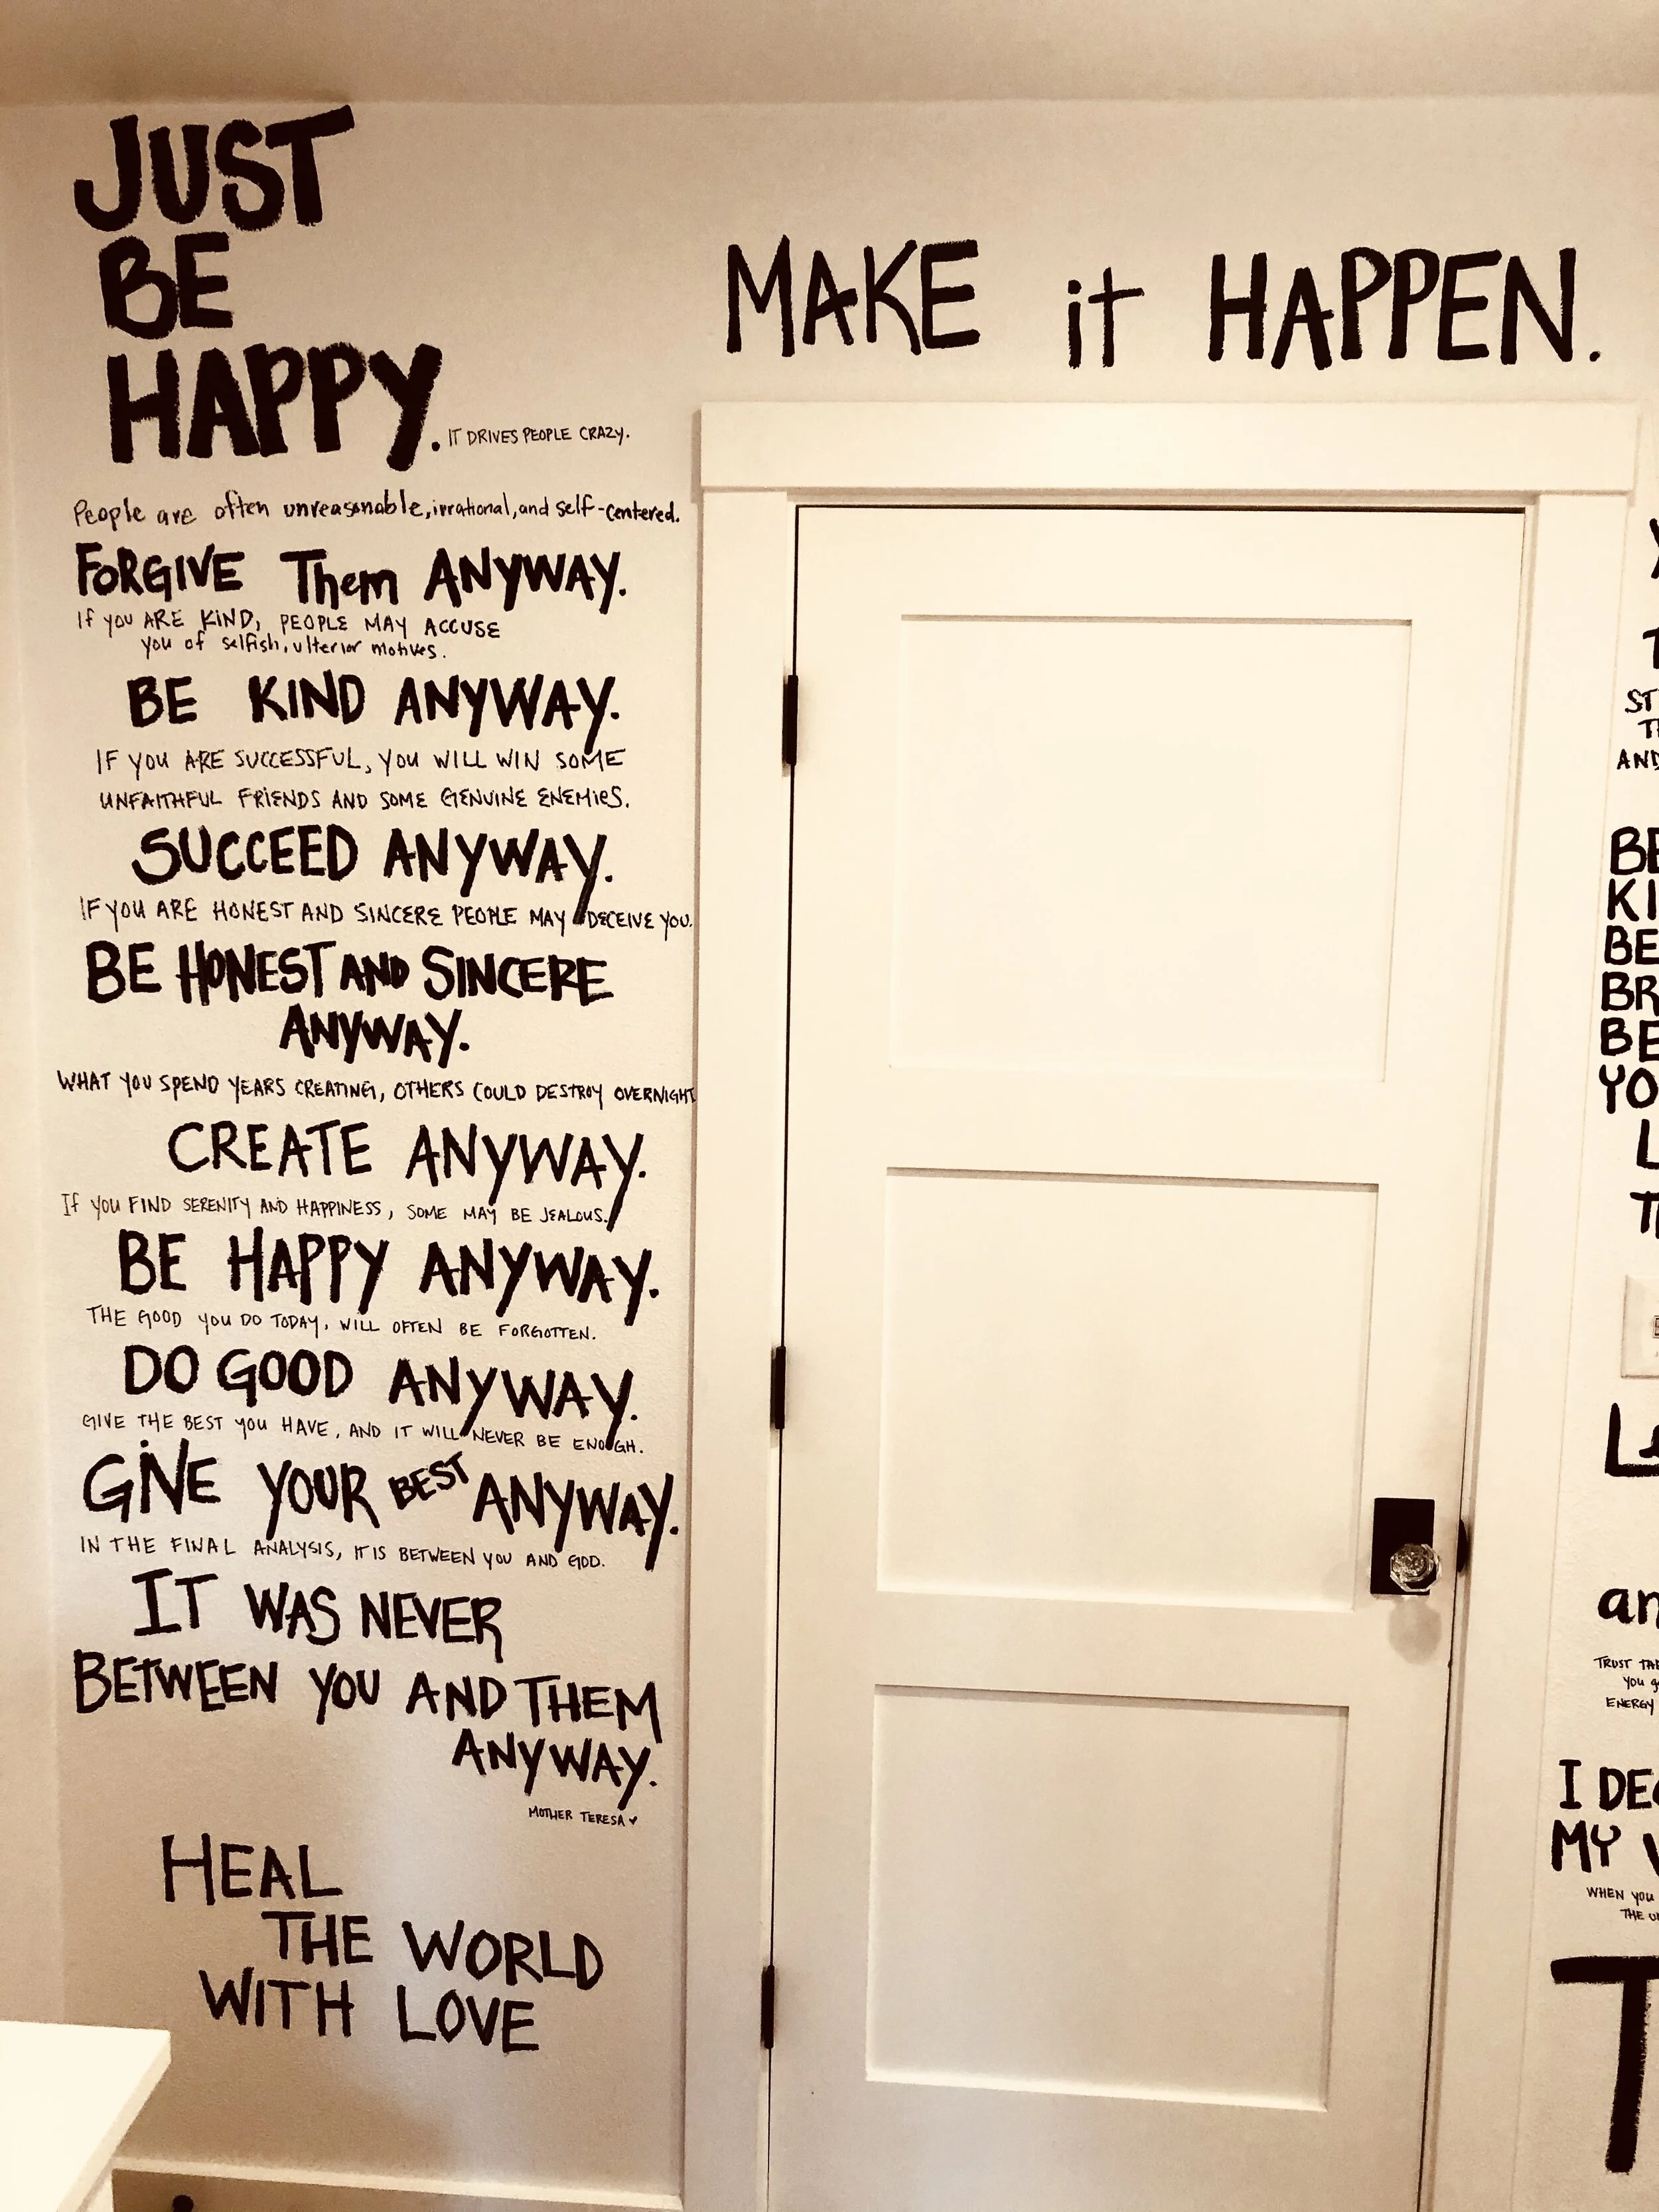 JUST
BE
HAPPY. IT DRIVES PEOPLE CRAZY.
People are often unreasonable, irrational, and self-centered.
FORGIVE Them ANYWAY.
If you ARE KIND, PEOPLE MAY ACCUSE
you of selfish, ulterior motives.
BE KIND ANYWAY.
IF YOU ARE SUCCESSFUL, YOU WILL WIN SOME
UNFAITHFUL FRIENDS AND SOME GENUINE ENEMIES.
SUCCEED ANYWAY.
IF YOU ARE HONEST AND SINCERE PEOPLE MAY DECEIVE YOU.
BE HONEST AND SINCERE
ANYWAY.
WHAT YOU SPEND YEARS CREATING, OTHERS COULD DESTROY OVERNIGHT
CREATE ANYWAY.
If YOU FIND SERENITY AND HAPPINESS, SOME MAY BE JEALOUS.
BE HAPPY ANYWAY.
THE GOOD YOU DO TODAY, WILL OFTEN BE FORGOTTEN.
DO GOOD ANYWAY.
GIVE THE BEST YOU HAVE, AND IT WILL NEVER BE ENOUGH.
GIVE YOUR BEST ANYWAY.
IN THE FINAL ANALYSIS, IT IS BETWEEN YOU AND GOD.
IT WAS NEVER
BETWEEN YOU AND THEM
ANYWAY.
MOTHER TERESA
HEAL
THE WORLD
WITH LOVE
MAKE it HAPPEN.
BE
BE
TRUST
YOU
ENERGY
I
MY
WHEN YOU
THE